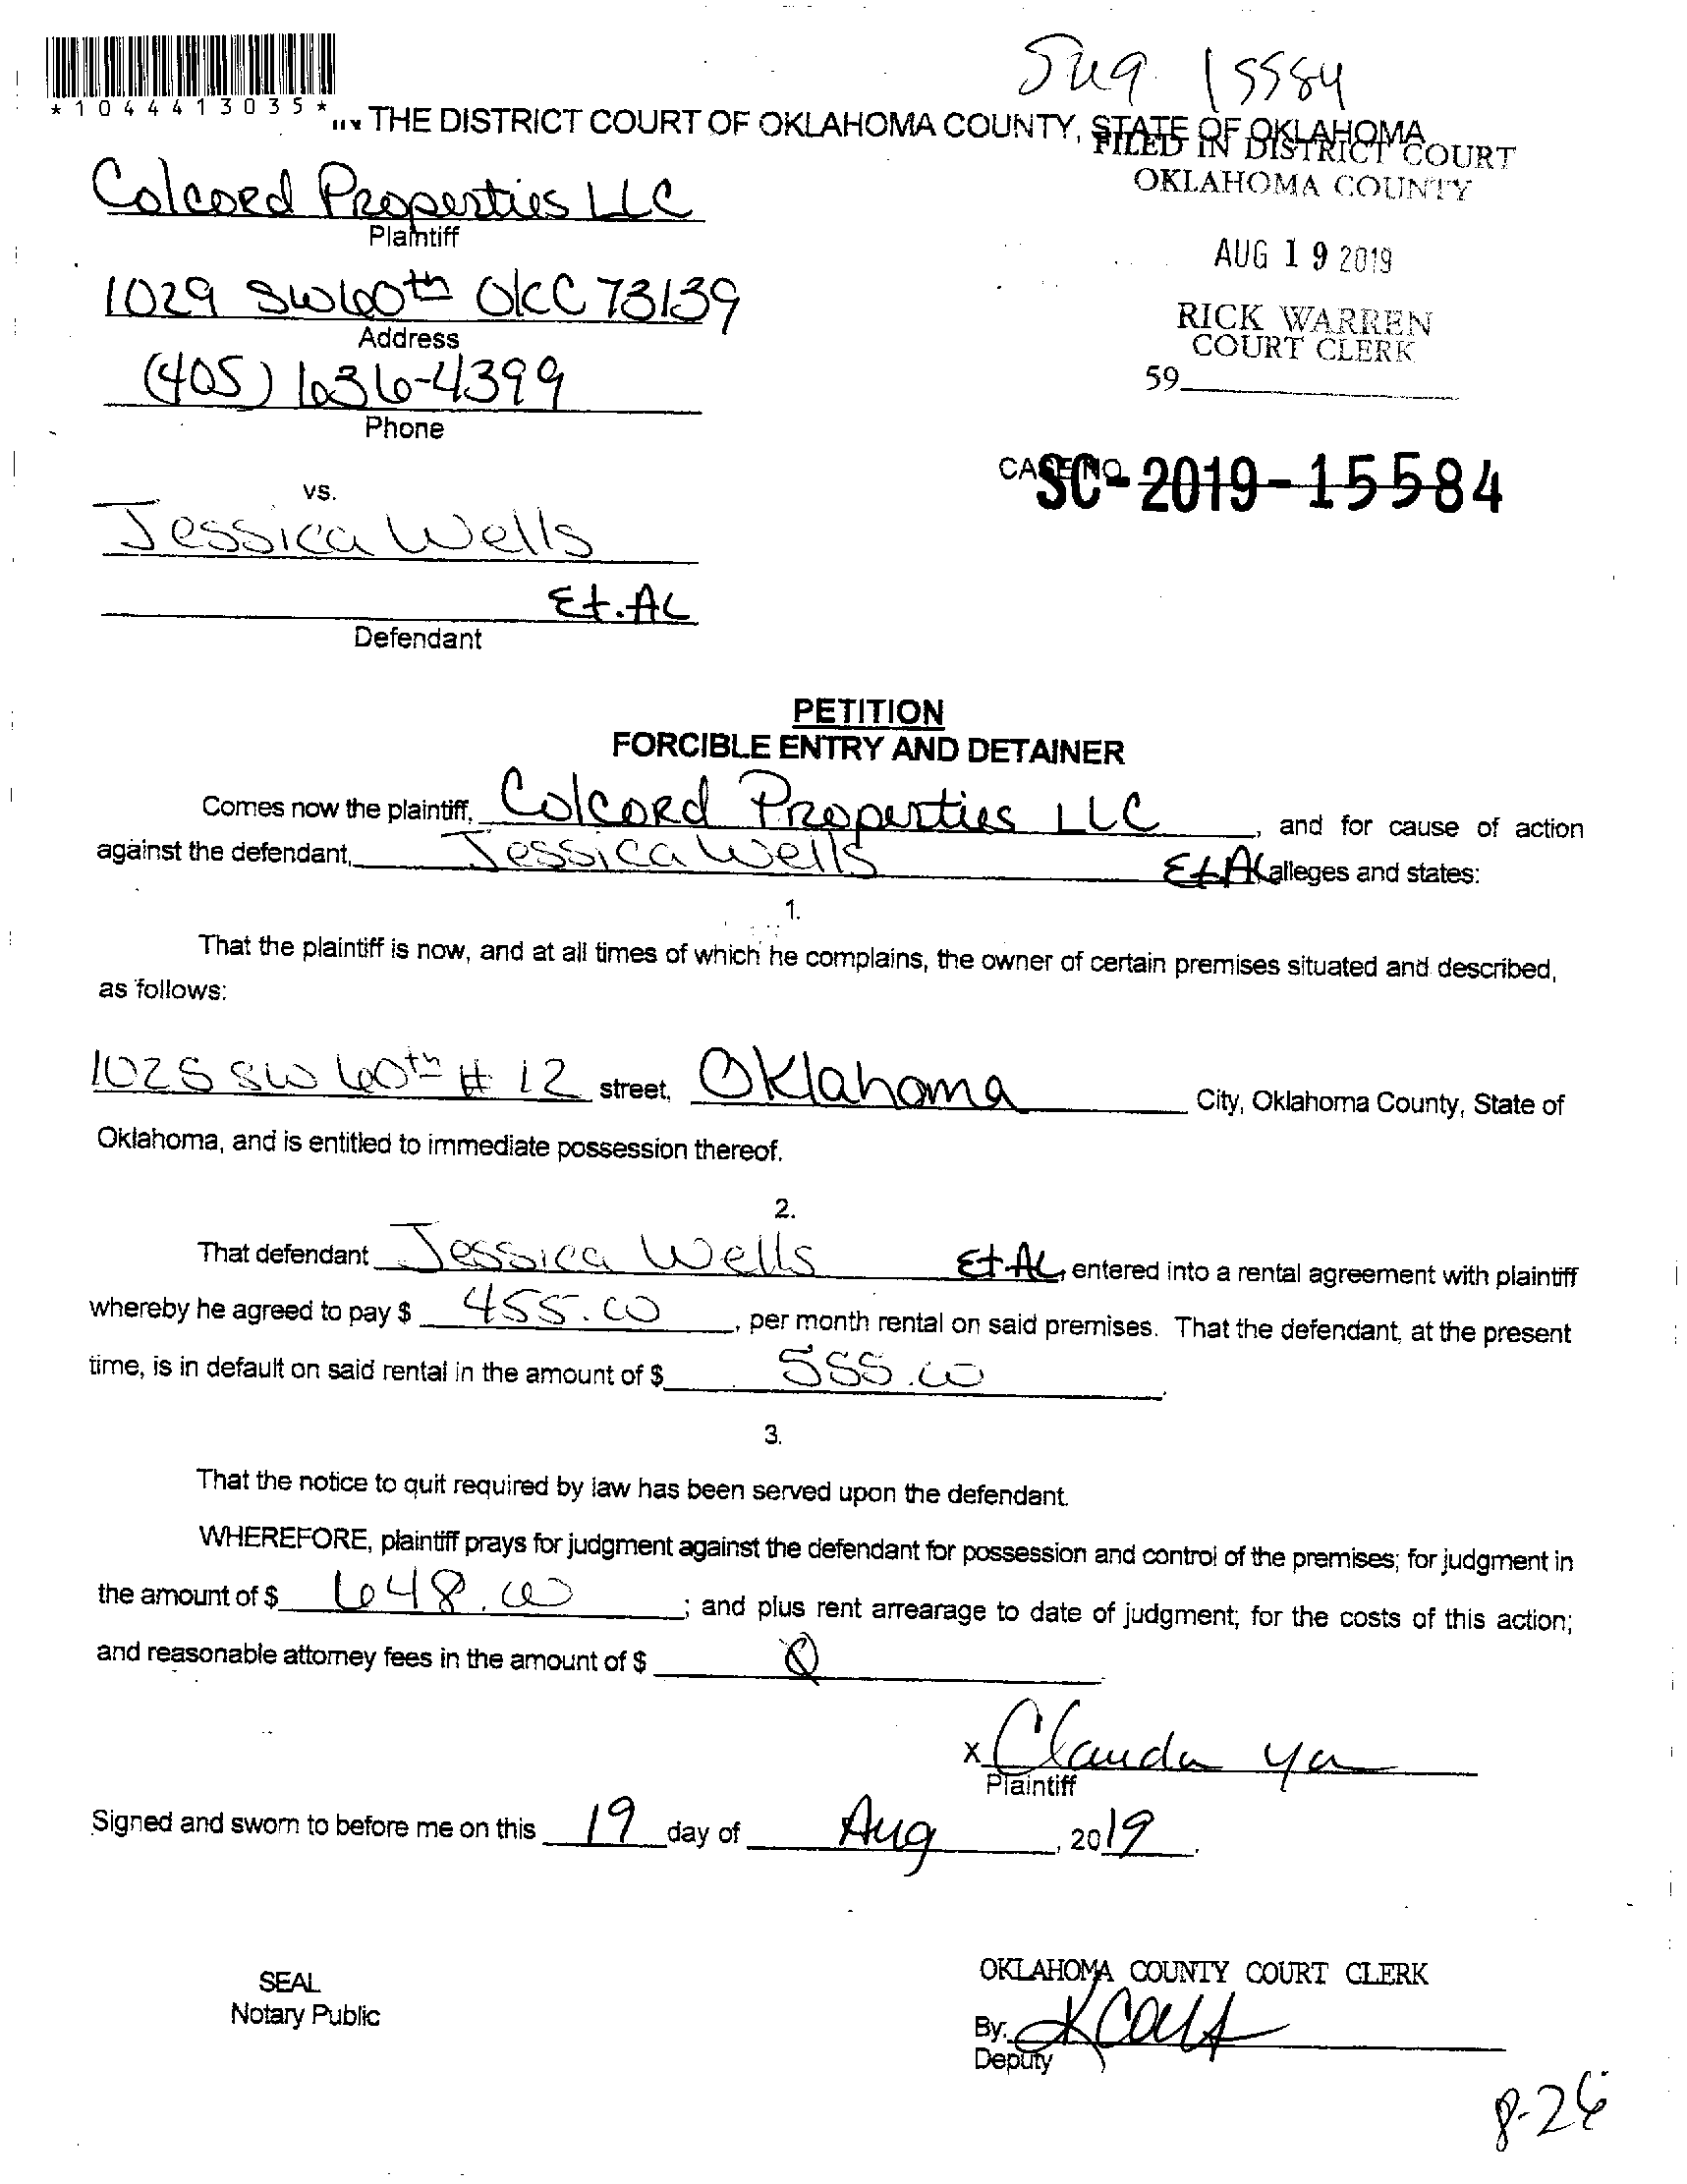 *1044413035*
Sug 15584
IN THE DISTRICT COURT OF OKLAHOMA COUNTY, STATE OF OKLAHOMA
FILED IN DISTRICT COURT
OKLAHOMA COUNTY
Colcord Properties LLC
Plaintiff
AUG 19 2019
1029 SW 60th OKC 73139
Address
RICK WARREN
COURT CLERK
(405) 636-4399
Phone
59
CASE NO. SC-2019-15584
vs.
Jessica Wells
Et. Al
Defendant
PETITION
FORCIBLE ENTRY AND DETAINER
Comes now the plaintiff, Colcord Properties LLC, and for cause of action
against the defendant, Jessica Wells Et. Al alleges and states:
1.
That the plaintiff is now, and at all times of which he complains, the owner of certain premises situated and described,
as follows:
1025 SW 60th # 12 street, Oklahoma City, Oklahoma County, State of
Oklahoma, and is entitled to immediate possession thereof.
2.
That defendant Jessica Wells Et Al, entered into a rental agreement with plaintiff
whereby he agreed to pay $ 455.00, per month rental on said premises. That the defendant, at the present
time, is in default on said rental in the amount of $ 555.00
3.
That the notice to quit required by law has been served upon the defendant.
WHEREFORE, plaintiff prays for judgment against the defendant for possession and control of the premises; for judgment in
the amount of $ 648.00; and plus rent arrearage to date of judgment; for the costs of this action;
and reasonable attorney fees in the amount of $ 0
x Claudia
Plaintiff
Signed and sworn to before me on this 19 day of Aug, 2019.
SEAL
Notary Public
OKLAHOMA COUNTY COURT CLERK
By:
Deputy
8-26